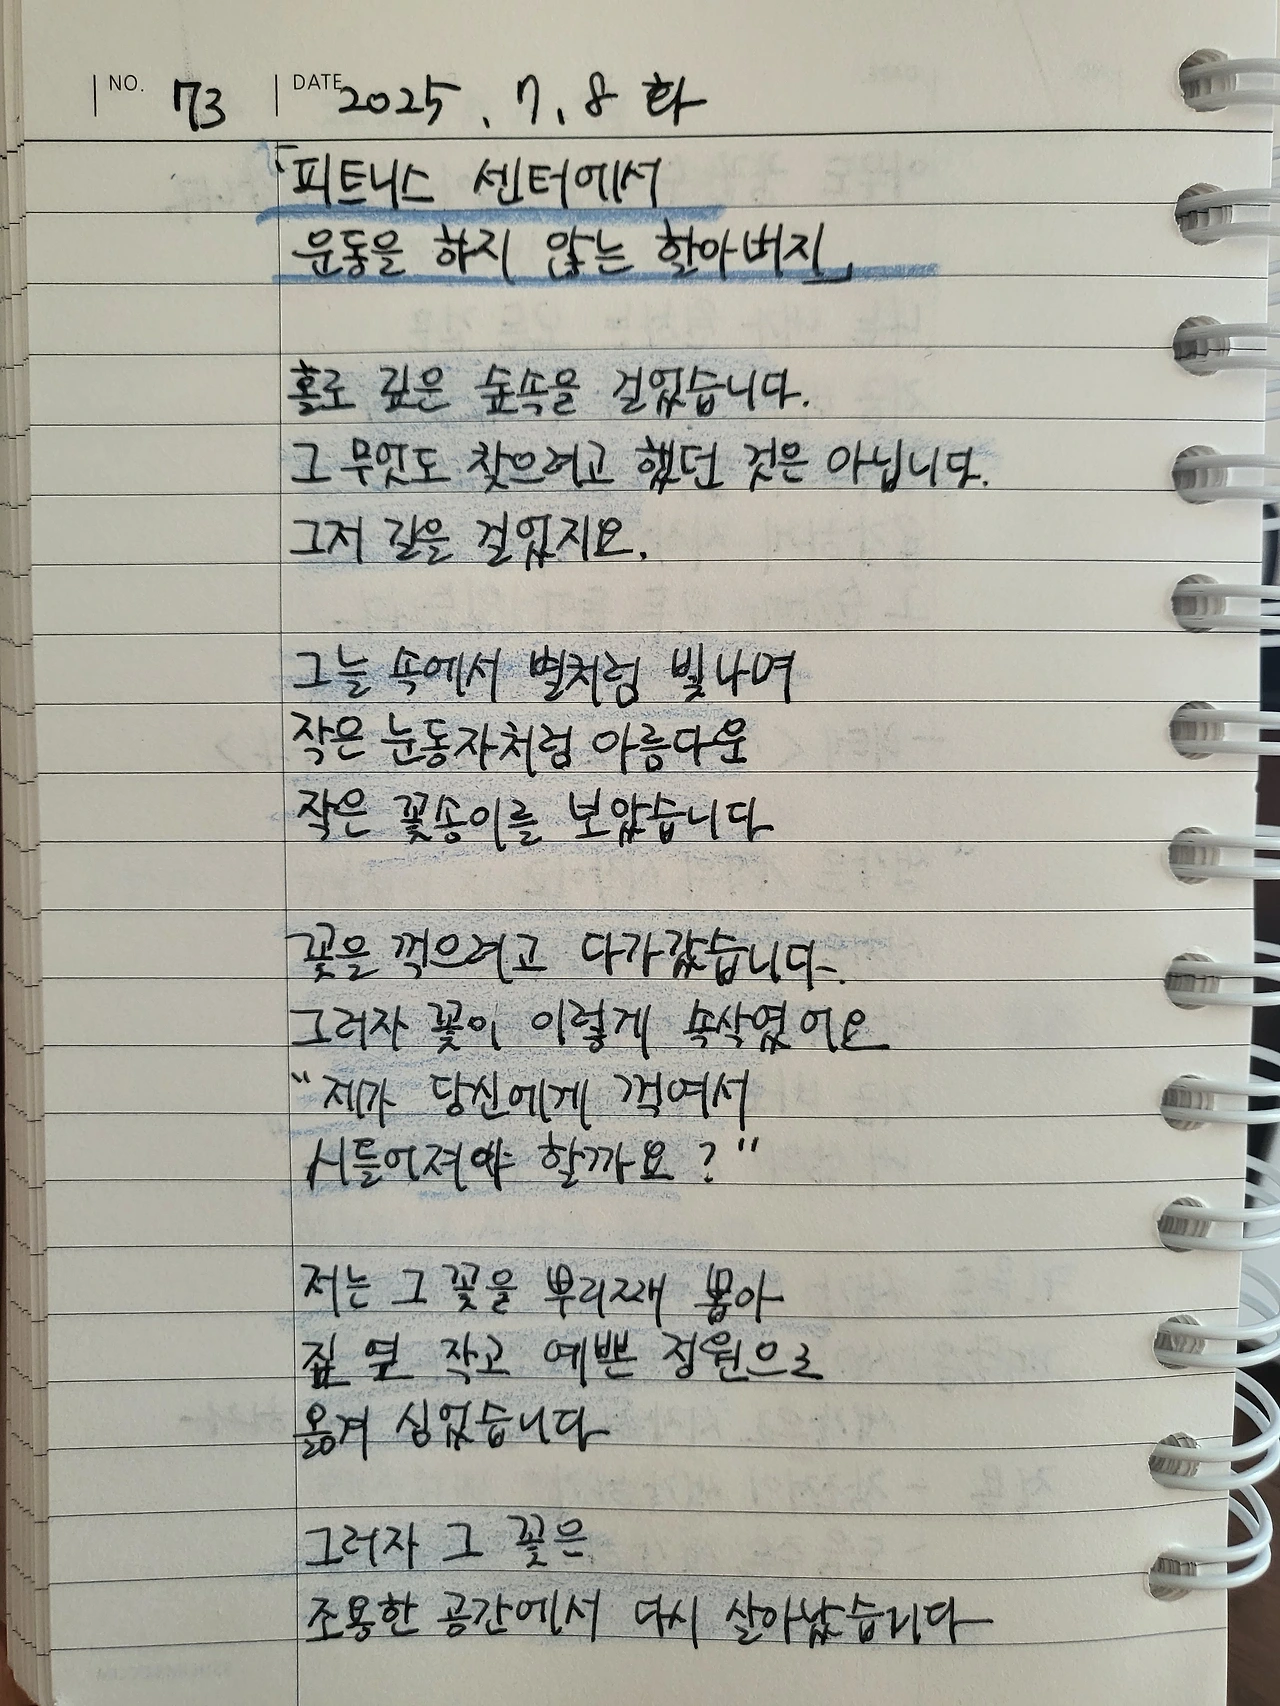 NO. 73 DATE 2025. 7. 8 화
「피트니스 센터에서
운동을 하지 않는 할아버지」
홀로 깊은 숲속을 걸었습니다.
그 무엇도 찾으려고 했던 것은 아닙니다.
그저 길을 걸었지요.
그늘 속에서 별처럼 빛나며
작은 눈동자처럼 아름다운
작은 꽃송이를 보았습니다
꽃을 꺽으려고 다가갔습니다.
그러자 꽃이 이렇게 속삭였어요
"제가 당신에게 꺽여서
시들어져야 할까요?"
저는 그 꽃을 뿌리째 뽑아
집 옆 작고 예쁜 정원으로
옮겨 심었습니다
그러자 그 꽃은
조용한 공간에서 다시 살아났습니다